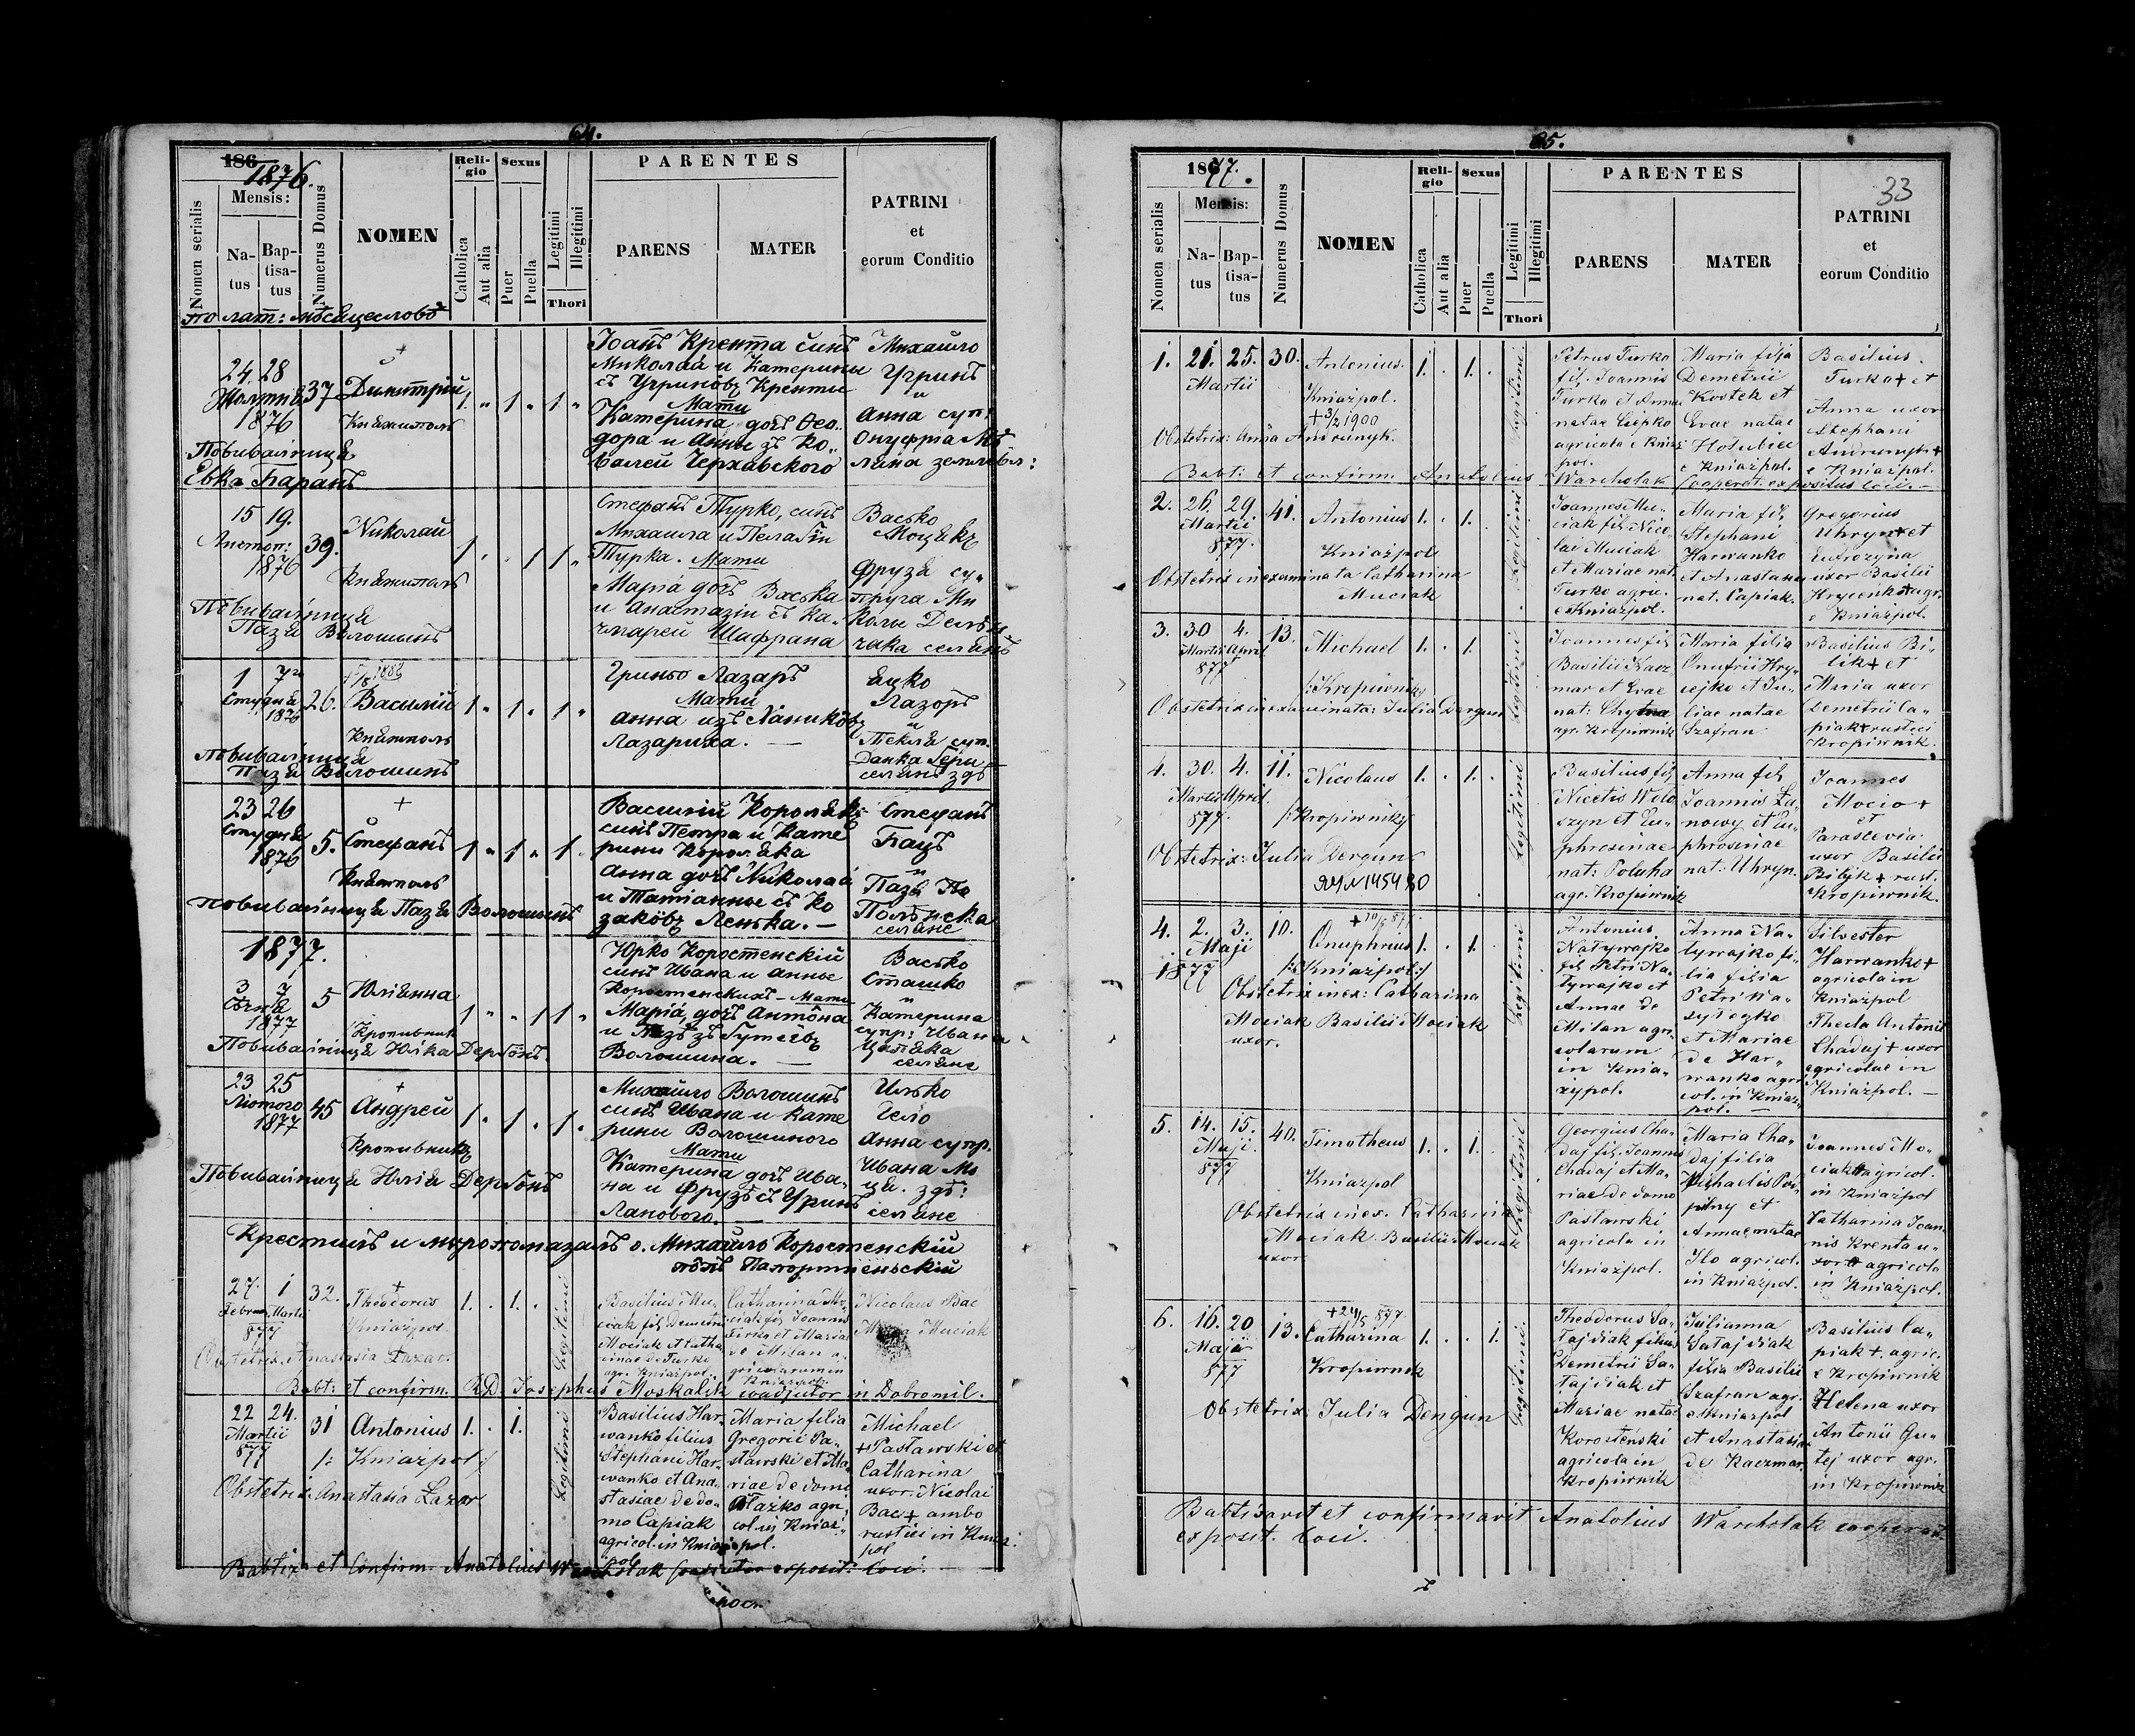 64.
186
1876.
Nomen serialis
Mensis:
Na-
tus
Bap-
tisa-
tus
Numerus Domus
NOMEN
Reli-
gio
Catholica
Aut alia
Sexus
Puer
Puella
Legitimi
Illegitimi
Thori
PARENTES
PARENS
MATER
PATRINI
et
eorum Conditio
по лат: мѣсяцеслову
24 28
Жолтня
1876
37
Димитрій
Княжполь
1 " 1 " 1 "
Іоанъ Крента синъ
Миколая и Катерины
съ Угриновъ Кренты
Мати
Катерина, дочь Ѳео-
дора и Анны зъ Ко-
валей Черхавского
Михайло
Угринъ
и
Анна суп:
Онуфрія
Повивальниця
Евка Баранъ
15 19.
Листоп:
1876
39.
Николай
Княжполь
Стефанъ Турко, синъ
Михаила и Пелагіи
Турка. Мати
Марія дочь Васька
и Анастазіи съ Ка-
Шафрана
Васько
Моцякъ
Фрузя су-
пруга Ми
колы
селянъ
Повивальниця
Пазя Волошинъ
1 7
Студня
1876
26.
Василій
Княжполь
Гринько Лазаръ
Мати
Анна изъ Паниковъ
Лазариха. —
Яцко
Лазоръ
и
Текля суп.
Данка
селянъ здѣ
Повивальниця
Пазя Волошинъ
23 26
Студня
1876
5.
+
Стефанъ
Княжполь
Василій Королякъ
синъ Петра и Кате
рины Короляка
Анна дочь Николая
и Татіанны съ Ко
заковъ Ленька. —
Стефанъ
Бацъ
и
Пазя По
Полянска
селяне
повивальниця Пазя Волошинъ
1877.
3 7
Сѣчня
1877
5
Юліанна
Кропивник
Юрко Коростенскій
синъ Ивана и Анны
Коростенскихъ - Мати
Марія, дочь Антона
и
Волошина. —
Васько
Сташко
и
Катерина
супр: Ивана
Цапяка
селяне
Повивальниця Юлка Дергунъ.
23 25
Лютого
1877
45
+
Андрей
Кропивникъ
Михайло Волошинъ
синъ Ивана и Кате
рины Волошиного
Мати
Катерина дочь Ива-
на и Фрузѣ съ Угринъ
Ланового. —
Илько
Гело
Анна супр.
Ивана Мо
ця. здѣ:
селяне
Повивальниця Юлія Дергунъ
Крестилъ и муропомазалъ о. Михайло Коростенскій
27. 1
Febru Martii
877
32.
+
Theodorus
Kniaźpol
1. . 1. .
Legitimi
Basilius Mu-
ciak fil. Demetrii
Mociak et Catha-
rinae de Turko
agr. Kniaźpol.
Catharina Mo-
ciak fil. Joannis
Turko et Mariae
de Milan a-
gricolarum in
Kniaźpol.
Nicolaus Bac
Muciak
Obstetrix: Anastasia Łazar.
Babt: et confirm. RD. Josephus Moskalik coadjutor in Dobromil.
22 24.
Martii
877
31
Antonius
/: Kniaźpol :/
1. . 1.
Legitimi
Basilius Har-
wanko filius
Stephani Har-
wanko et Ana-
stasiae de do-
mo Capiak
agricol. in Kniaź-
pol.
Maria filia
Gregorii Pa-
sławski et Ma-
riae de domo
agri-
col. in Kniaź-
pol.
Michael
+ Pasławski et
Catharina
uxor. Nicolai
Bac + ambo
rustici in Kniaź:
pol
Obstetrix: Anastasia Łazar
Babtiz. et Confirm. Anatolius Warchołak exposit: loci.
65.
33
1877.
Nomen serialis
Mensis:
Na-
tus
Bap-
tisa-
tus
Numerus Domus
NOMEN
Reli-
gio
Catholica
Aut alia
Sexus
Puer
Puella
Legitimi
Illegitimi
Thori
PARENTES
PARENS
MATER
PATRINI
et
eorum Conditio
1. 21. 25. 30.
Martii
Antonius.
Kniaźpol.
+ 3/2 1900
1. . 1. .
Legitimi
Petrus Turko
fil. Joannis
Turko et Annae
natae Ciepko
agricola e Kniaź
pol.
Maria filia
Demetrii
Kostek et
Evae natae
Hołubiec
e Kniaźpol.
Basilius
Turko + et
Anna uxor
Stephani
Andrunyk +
e Kniaźpol.
Obstetrix: Anna Andrunyk.
Babt: et confirm. Anatolius Warchołak Cooperat. expositus loci. —
2. 26. 29. 41.
Martii
877.
Antonius
Kniaźpol
1. . 1. .
Legitimi
Joannes Mu-
ciak fil. Nico-
lai Muciak
et Mariae nat.
Turko agric.
e Kniaźpol.
Maria fil.
Stephani
Harwanko
et Anastasiae
nat. Capiak.
Gregorius
Uhryn + et
Eufrozyna
uxor Basilii
Hrycenko + agr.
e Kniaźpol.
Obstetrix inexaminata Catharina
Muciak
3. 30 4. 13.
Martii April
877
Michael
/: Kropiwnik :/
1. . 1.
Legitimi
Joannes fil.
Basilii Kacz-
mar et Evae
nat.
agr. Kropiwnik
Maria filia
Onufrii Hry-
cejko et Ju-
liae natae
Szafran
Basilius Bi-
lik + et
Maria uxor
Demetrii Ca-
piak + rustici
Kropiwnik.
Obstetrix inexaminata: Julia Dergun
4. 30. 4. 11.
Martii April.
877.
Nicolaus
/: Kropiwnik :/
1. . 1. .
Legitimi
Basilius fil.
Nicetis Woło-
szyn et Eu-
phrosinae
nat: Poluha
agr. Kropiwnik
Anna fil.
Joannis Ła-
nowy et Eu-
phrosinae
nat: Uhryn.
Joannes
Mocio +
et
Parascevia
uxor Basilii
Bilyk + rust.
Kropiwnik.
Obstetrix: Julia Dergun
4. 2. 3. 10.
Maji
1877
Onuphrius
/: Kniaźpol :/
1. . 1. .
Legitimi
Antonius
Natywajko
fil. Petri Na-
tywajko et
Annae de
Milan agri-
colarum
in Knia-
zypol.
Anna Na-
tywajko fi-
lia
Petri
et Mariae
de Har-
wanko agri-
col. in Kniaź-
pol. —
Silvester
Harwanko +
agricola in
Kniaźpol
Thecla Antonii
Chaduj + uxor
agricolae in
Kniaźpol. —
Obstetrix inex: Catharina
Mociak Basilii Mociak
uxor.
5. 14. 15. 40.
Maji.
877
Timotheus
Kniaźpol
1. . 1.
Legitimi
Georgius Cha-
daj fil. Joannis
Chadaj et Ma-
riae de domo
Pasławski
agricola in
Kniaźpol.
Maria Cha-
daj filia
Michaelis
et
Annae natae
Ilo agricol.
in Kniaźpol.
Joannes Mo-
ciak + agricol.
in Kniaźpol
Catharina Joan-
nis Krenta u-
xor + agricola
in Kniaźpol.
Obstetrix inex. Catharina
Mociak Basilii Mociak
uxor
6. 16. 20 13.
Maji
877
+ 24/5 877.
Catharina
Kropiwnik
1. . . 1.
Legitimi.
Theodorus Sa-
tajdiak filius
Demetrii Sa-
tajdiak et
Mariae natae
Korostenski
agricola in
Kropiwnik
Julianna
Satajdiak
filia Basilii
Szafran agr.
e Kniaźpol
et Anastasiae
de Kaczmar.
Basilius Ca-
piak +. agric.
e Kropiwnik
Helena uxor
Antonii Gu-
tej uxor agr.
in Kropiwnik
Obstetrix: Julia Dergun
Babtisavit et confirmavit Anatolius Warchołak cooperat.
exposit. loci.